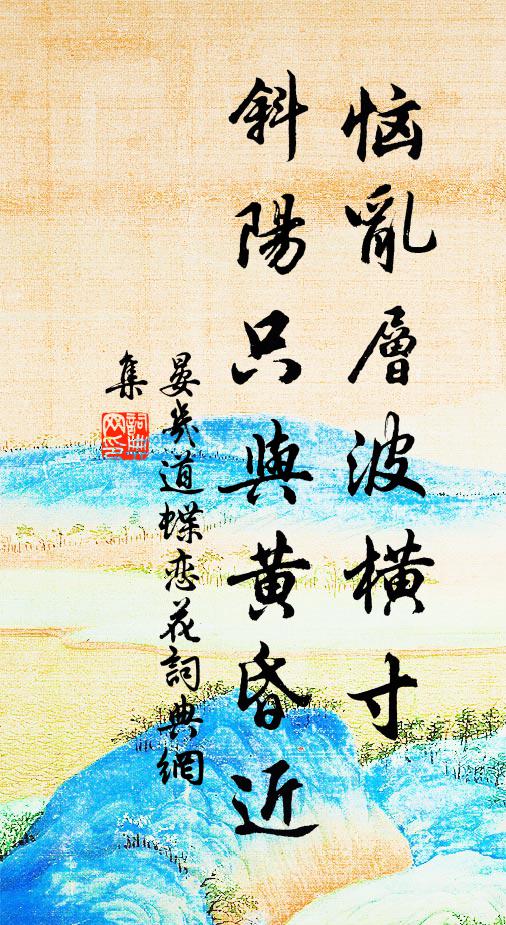 恼亂層波橫寸
斜陽只與黄昏近
晏幾道蝶恋花詞典網
集
詞典網印